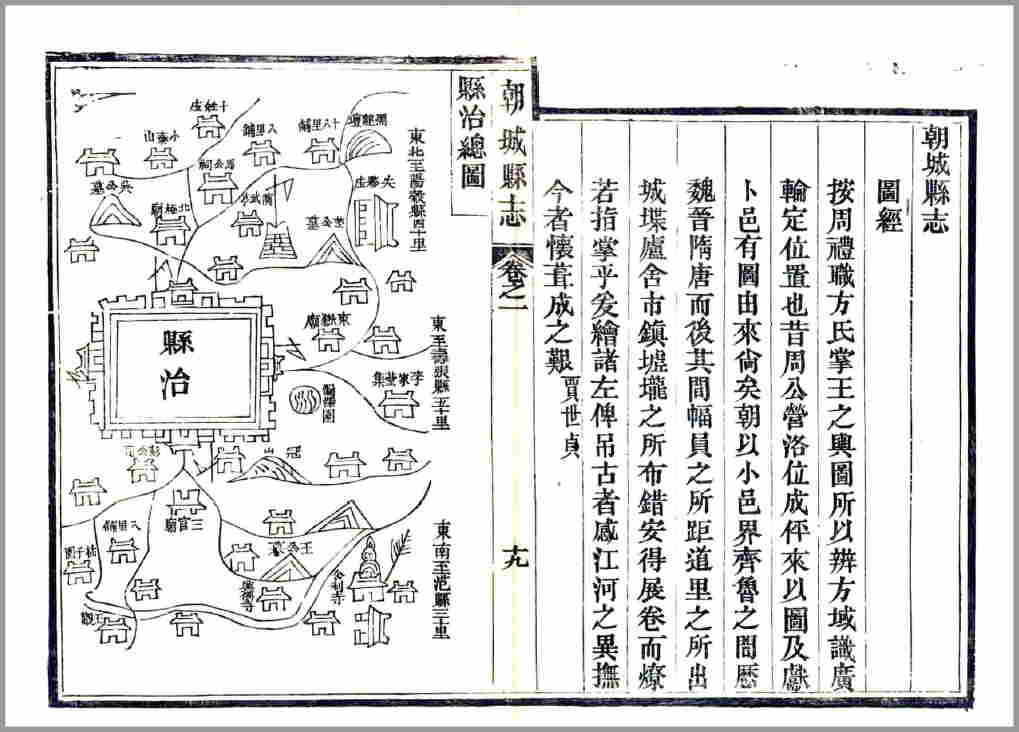 朝城縣志
圖經
按周禮職方氏掌王之輿圖所以辨方域識廣
輪定位置也昔周公營洛位成伻來以圖及獻
卜邑有圖由來尙矣朝以小邑界齊魯之間歷
魏晉隋唐而後其間幅員之所距道里之所出
城堞廬舍市鎮墟壠之所布錯安得展卷而燎
若指掌乎爰繪諸左俾吊古者感江河之異撫
今者懷葺成之艱賈世貞
朝城縣志
卷之一
十九
縣治總圖
東北至陽穀縣四十里
東至壽張縣五十里
東南至范縣三十里
十八里舖
八里舖
小泰山
馬公祠
吳公墓
北極廟
東嶽廟
李家臺集
縣治
冠山
三官廟
八里舖
王公墓
舍利寺